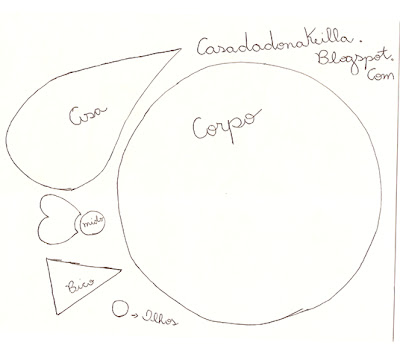 CasadadonaKeilla.
Blogspot.
Com
Asa
Corpo
miolo
Bico
→ Olhos